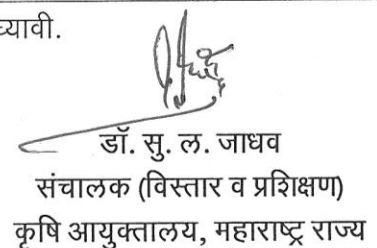 घ्यावी.
डॉ. सु. ल. जाधव
संचालक (विस्तार व प्रशिक्षण)
कृषि आयुक्तालय, महाराष्ट्र राज्य